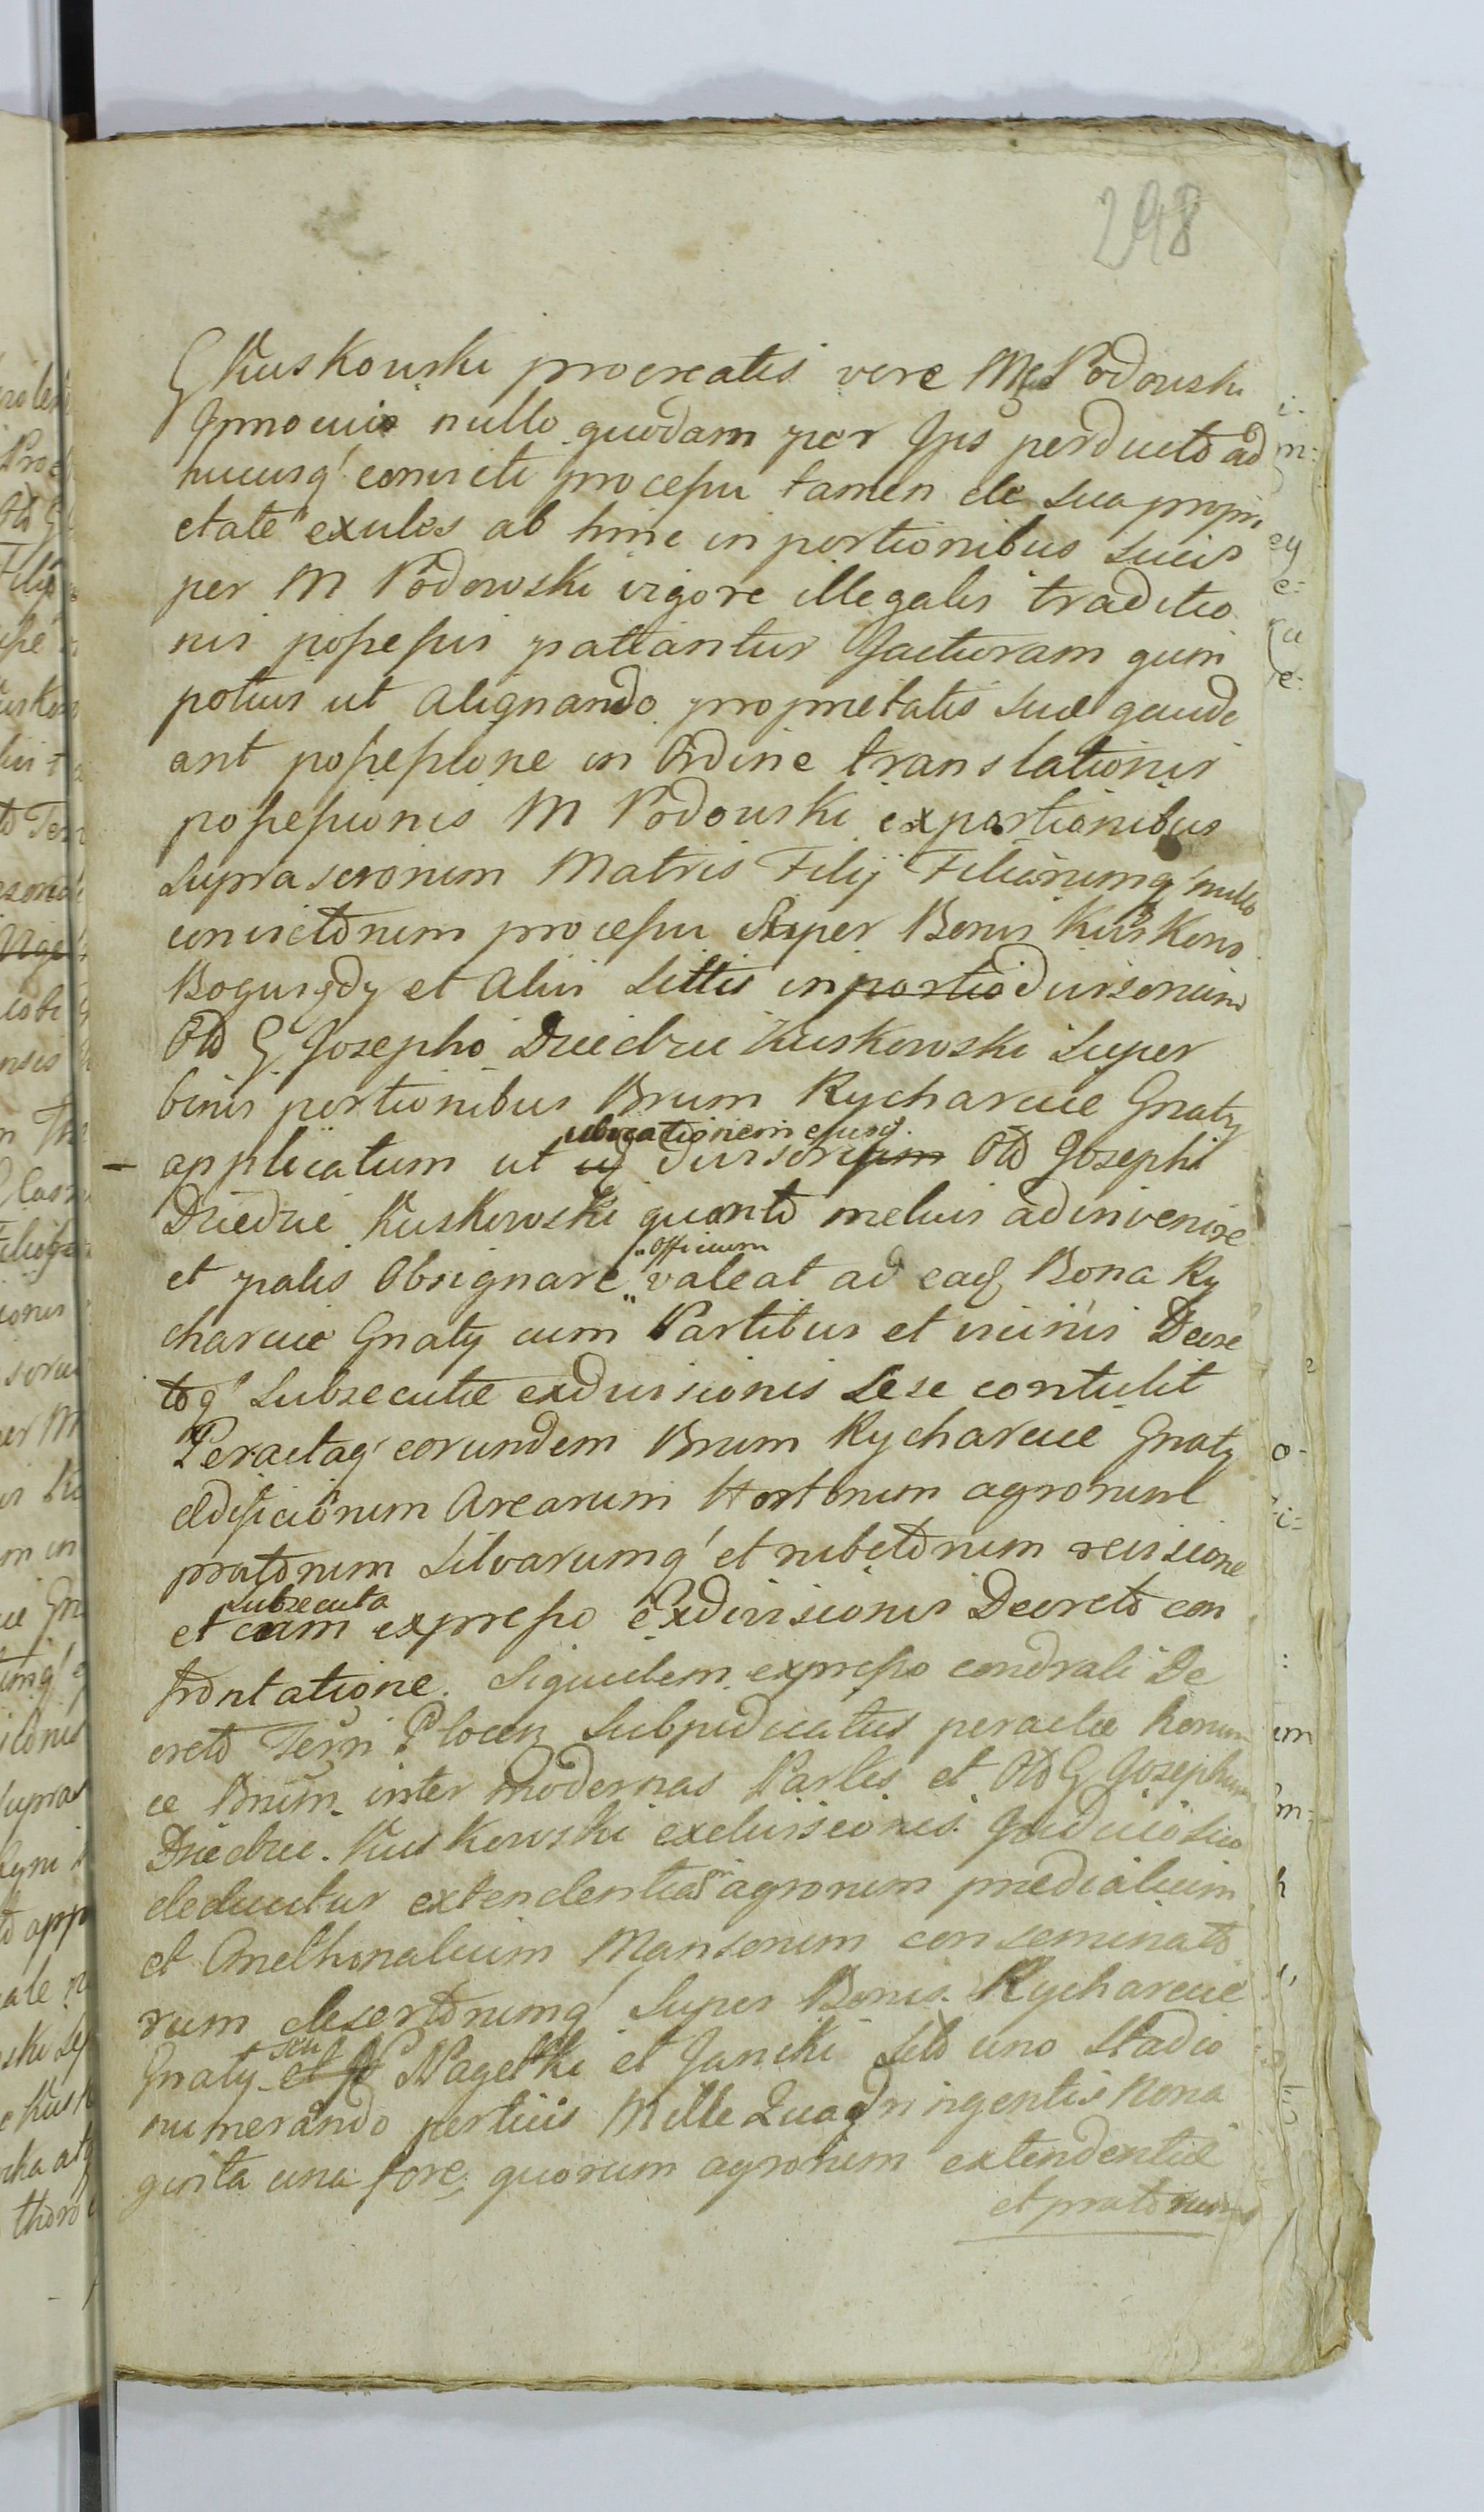 298
G Kuskowski procreatis vere M Podowski
Innocuis nullo quodam per Ips perducto ad
hucusq convicti processu tamen de sua propri
etate exules ab hinc in portionibus suis
per M Podowski vigore illegalis traditio
nis possessis patiantur Jacturam quin
potius ut aliqnando proprietatis suæ gaude
ant possessione in Ordine translationis
possessionis M Podowski ex portionibus
suprascrorum Matris Filij Filiarumq nullo
convictorum processu super Bonis Kuskowo
Bogusędy et aliis sittis in portio divisorum
Old G Josepho Dziedzic Kuskowski super
binis portionibus Bnum Rycharcice Gnaty
ubicationem ejusq.
applicatum ut divisorum Old Josephi
Dziedzic Kuskowski quanto melius adinvenire
officium
et palis Obsignare valeat ad eaq Bona Ry
charcice Gnaty cum Partibus et vicinis Decre
toq subsecutæ exdivisionis sese contulit
Peractaq eorundem Bnum Rycharcice Gnaty
ædificiorum Arearum Hortorum agrorum
pratorum Silvarumq et rubetorum revisione
subsecuta
et cum expresso exdivisionis Decreto con
frontatione. Siquidem expresso condrali De
creto Terri Plocen Subjudicatus peractæ horum
ce Bnum inter modernas Partes et Old G Josephum
Dziedzic Kuskowski exdivisionis Judicio suo
deducitur extendentias agrorum prædialium
et Cmethonalium Mansorum conseminato
rum desertorumq super Bonis Rycharcice
seu
Gnaty et Nagetki et Janiki sito uno Stadio
numerando perticis Mille Quadringentis Nona
ginta una fore, quorum agrorum extendentiæ
et pratorum